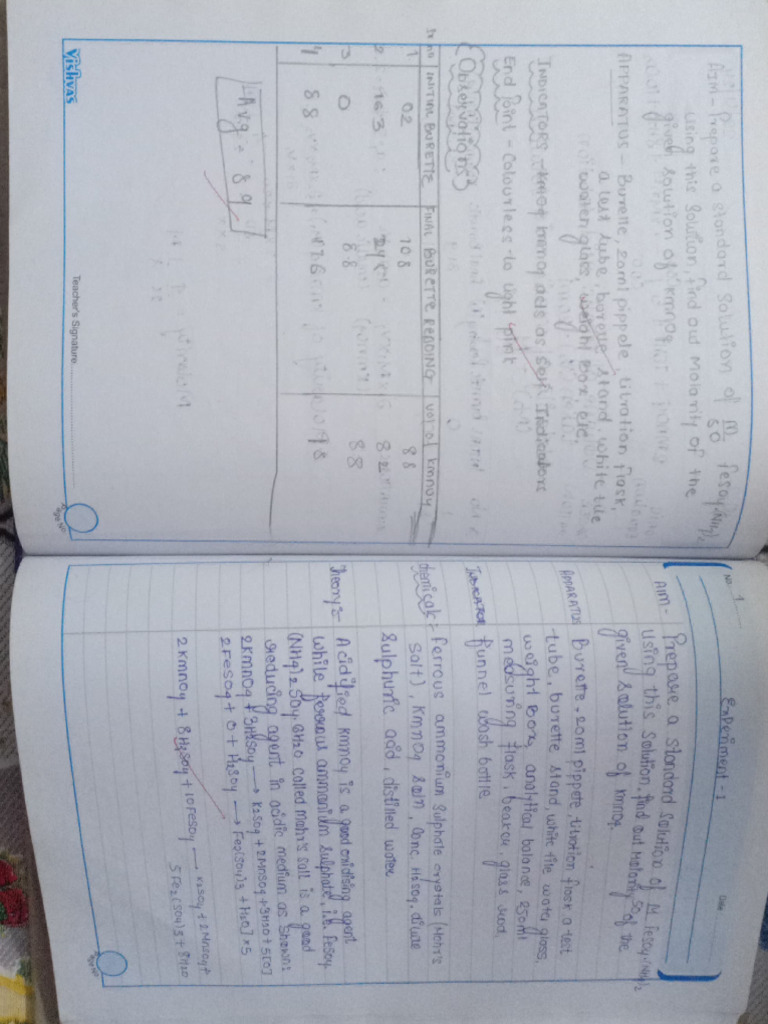 Aim - Prepare a standard solution of M/50 FeSO4(NH4)2
using this solution, find out Molarity of the
given solution of KMnO4
APPARATUS - Burette, 20ml pippete, titration flask,
a test tube, burette stand white tile
water glass, weight box, etc.
INDICATORS - KMnO4 KMnO4 acts as Self Indicators
End Point - Colourless to light pink
(Observations)
Sr no INITIAL BURETTE FINAL BURETTE READING Vol of KMnO4
1 02 108 88
2 163 245 82
3 0 88 88
4 88 98
Avg = 89
Teacher's Signature
Vishvas
Page No.
No. 1 Experiment - 1 Date
AIM - Prepare a standard solution of M/50 FeSO4(NH4)2
Using this solution, find out Molarity of the
given solution of KMnO4
APPARATUS Burette, 20ml pippete, titration flask a test
tube, burette stand, white tile watch glass,
weight box, analytical balance, 250ml
measuring flask, beaker, glass
INDICATOR funnel wash bottle.
Chemicals - Ferrous ammonium sulphate crystals (Mohr's
salt), KMnO4 soln, Conc. H2SO4, dilute
Sulphuric acid, distilled water
Theory :- Acidified KMnO4 is a good oxidising agent
while ferrous ammonium sulphate, i.e. FeSO4
(NH4)2 SO4 6H2O called Mohr's salt is a good
reducing agent in acidic medium as shown:
2KMnO4 + 3H2SO4 → K2SO4 + 2MnSO4 + 3H2O + 5[O]
2FeSO4 + O + H2SO4 → Fe2(SO4)3 + H2O] × 5
2KMnO4 + 8H2SO4 + 10FeSO4 → K2SO4 + 2MnSO4 +
5Fe2(SO4)3 + 8H2O
Page No.